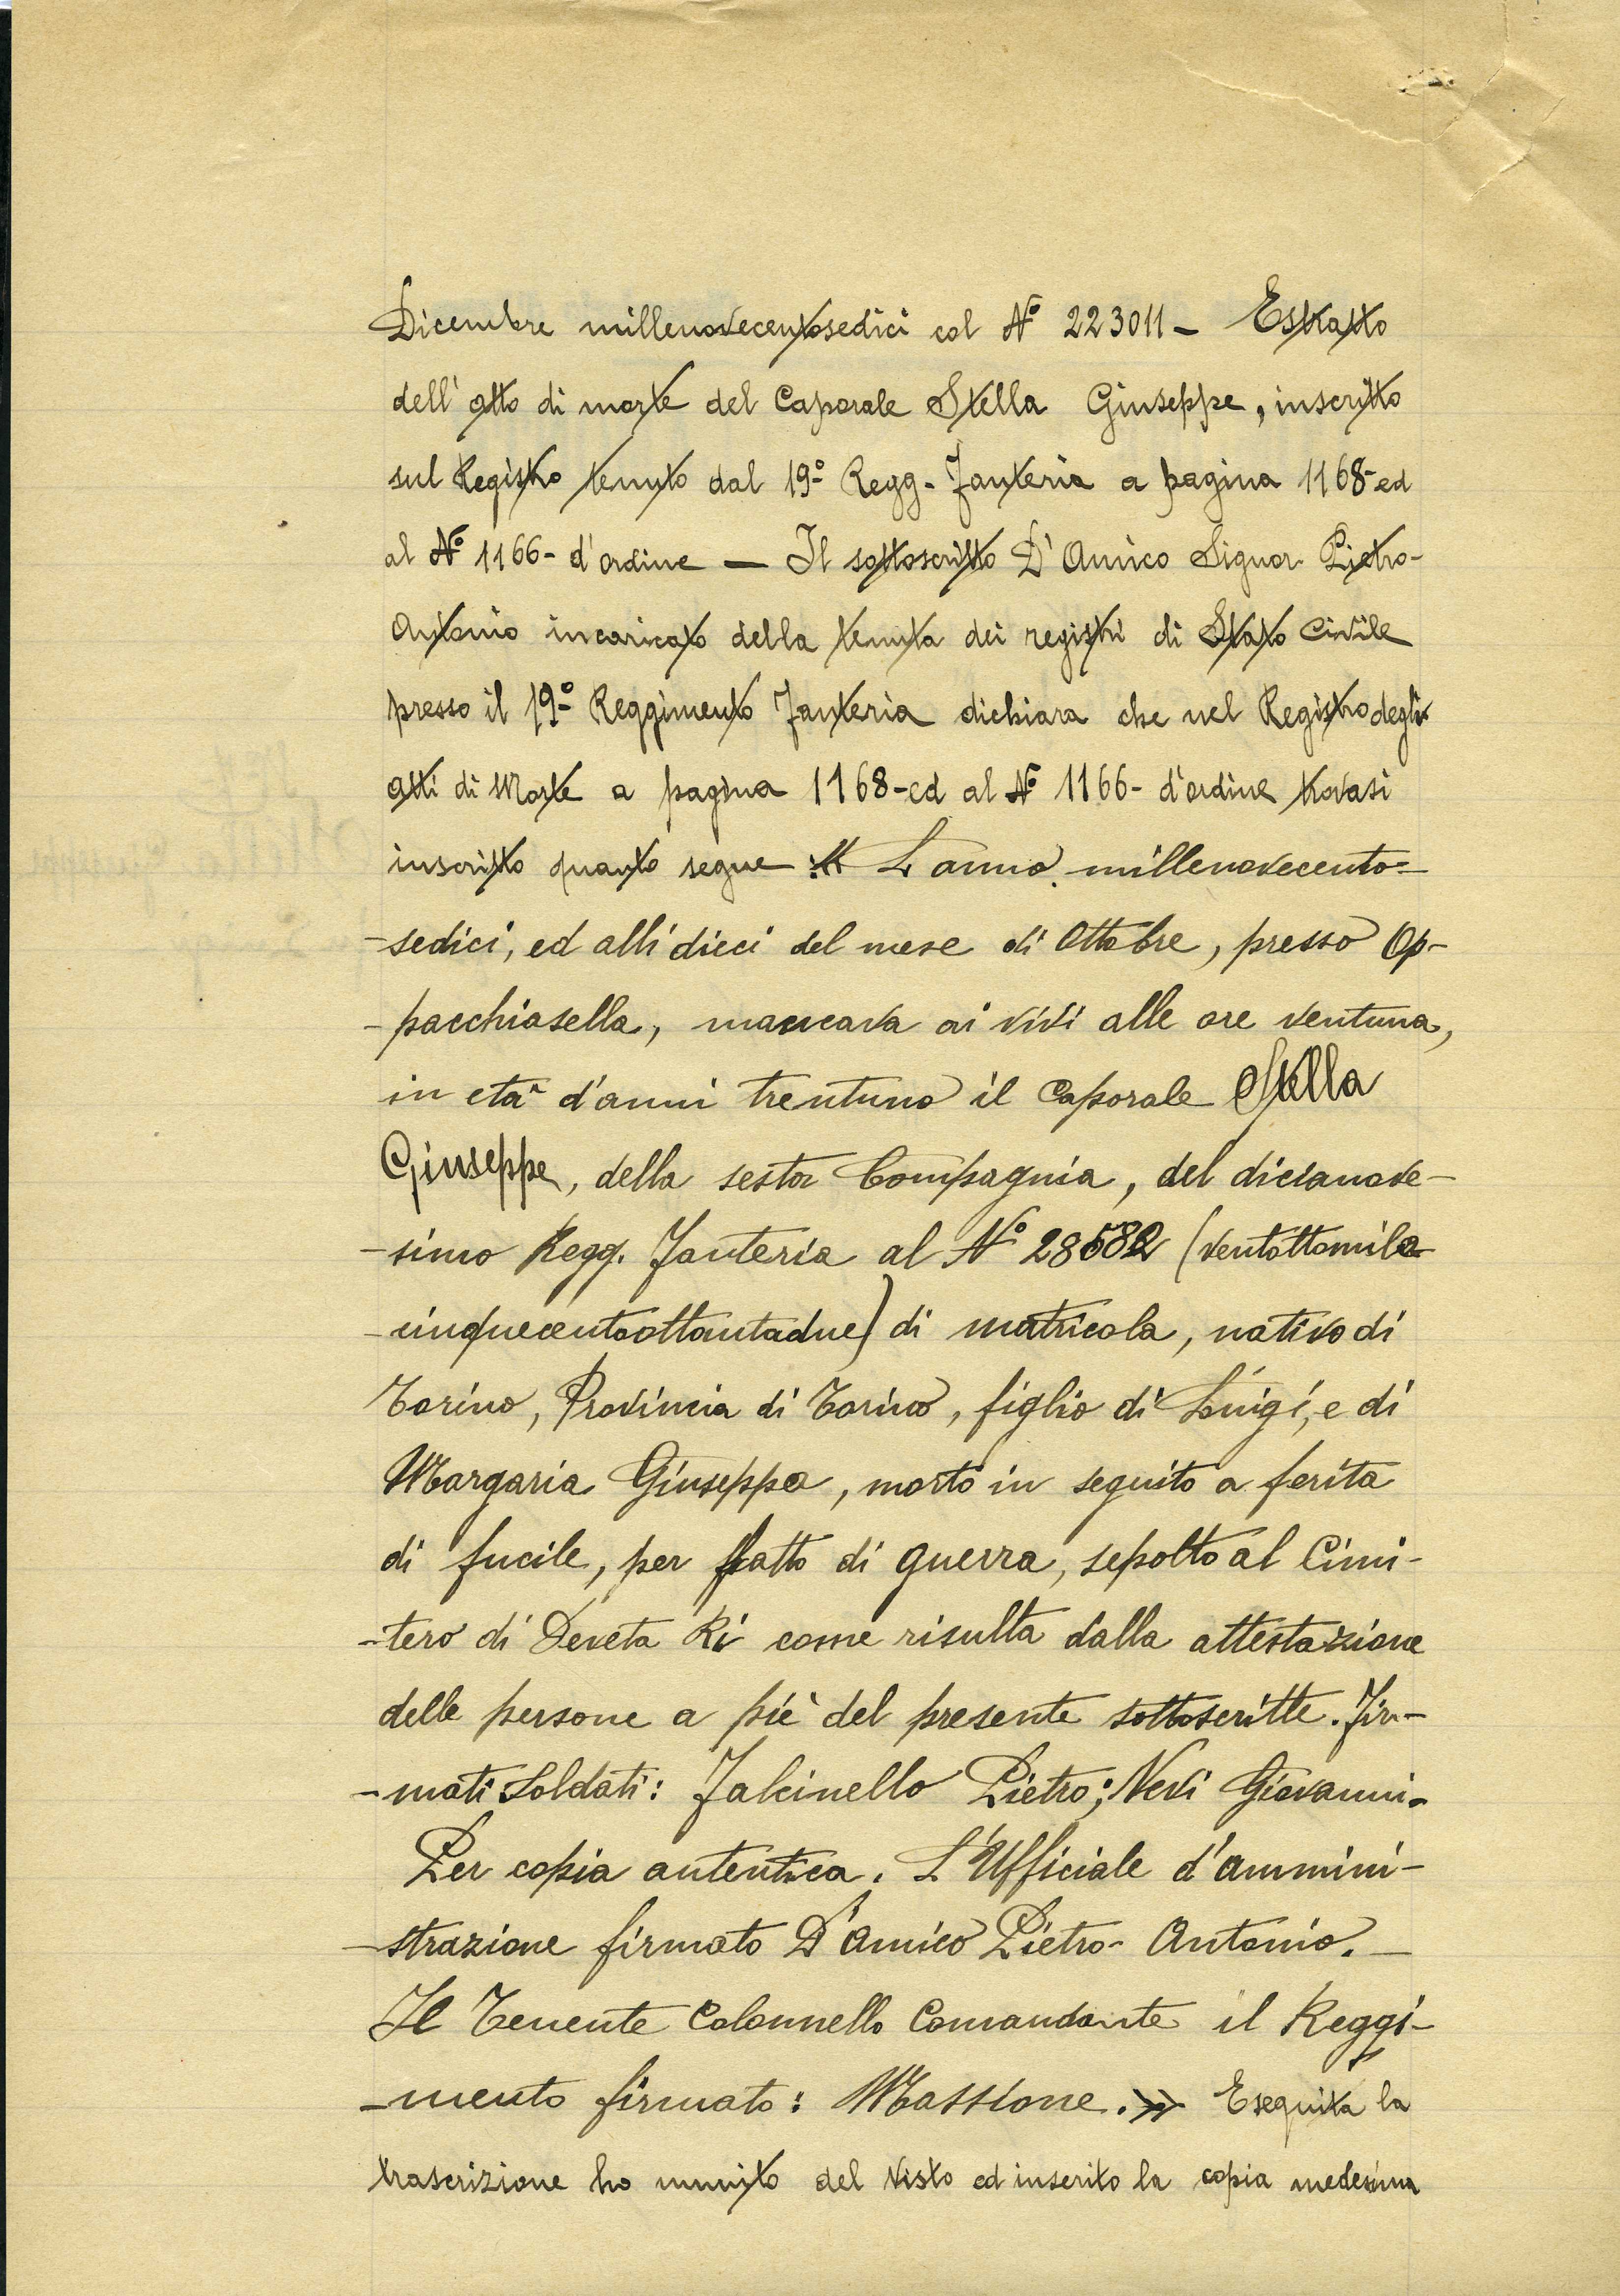 Dicembre millenovecentosedici col Nº 223011 - Estratto
dell'atto di morte del Caporale Stella Giuseppe, inscritto
sul Registro tenuto dal 19º Regg. Fanteria a pagina 1168 - ed
al Nº 1166 - d'ordine — Il sottoscritto D'Amico Signor Pietro-
Antonio incaricato della tenuta dei registri di Stato Civile
presso il 19º Reggimento Fanteria dichiara che nel Registro degli
atti di Morte a pagina 1168 - ed al Nº 1166 - d'ordine trovasi
inscritto quanto segue :« L'anno millenovecento=
-sedici, ed alli dieci del mese di Ottobre, presso Op-
-pacchiasella, mancava ai vivi alle ore ventuna,
in età d'anni trentuno il Caporale Stella
Giuseppe, della sesta Compagnia, del dicianove-
-simo Regg. Fanteria al Nº 28582 (ventottomila
-cinquecentoottantadue) di matricola, nativo di
Torino, Provincia di Torino, figlio di Luigi, e di
Margaria Giuseppa, morto in seguito a ferita
di fucile, per fatto di guerra, sepolto al Cimi-
-tero di Deveta Ki come risulta dalla attestazione
delle persone a piè del presente sottoscritte. Fir-
-mati Soldati: Falcinello Pietro; Nevi Giovanni.
Per copia autentica. L'Ufficiale d'ammini-
-strazione firmato D'Amico Pietro-Antonio. —
Il Tenente Colonnello Comandante il Reggi-
-mento firmato: Massione. » Eseguita la
trascrizione ho munito del visto ed inserito la copia medesima